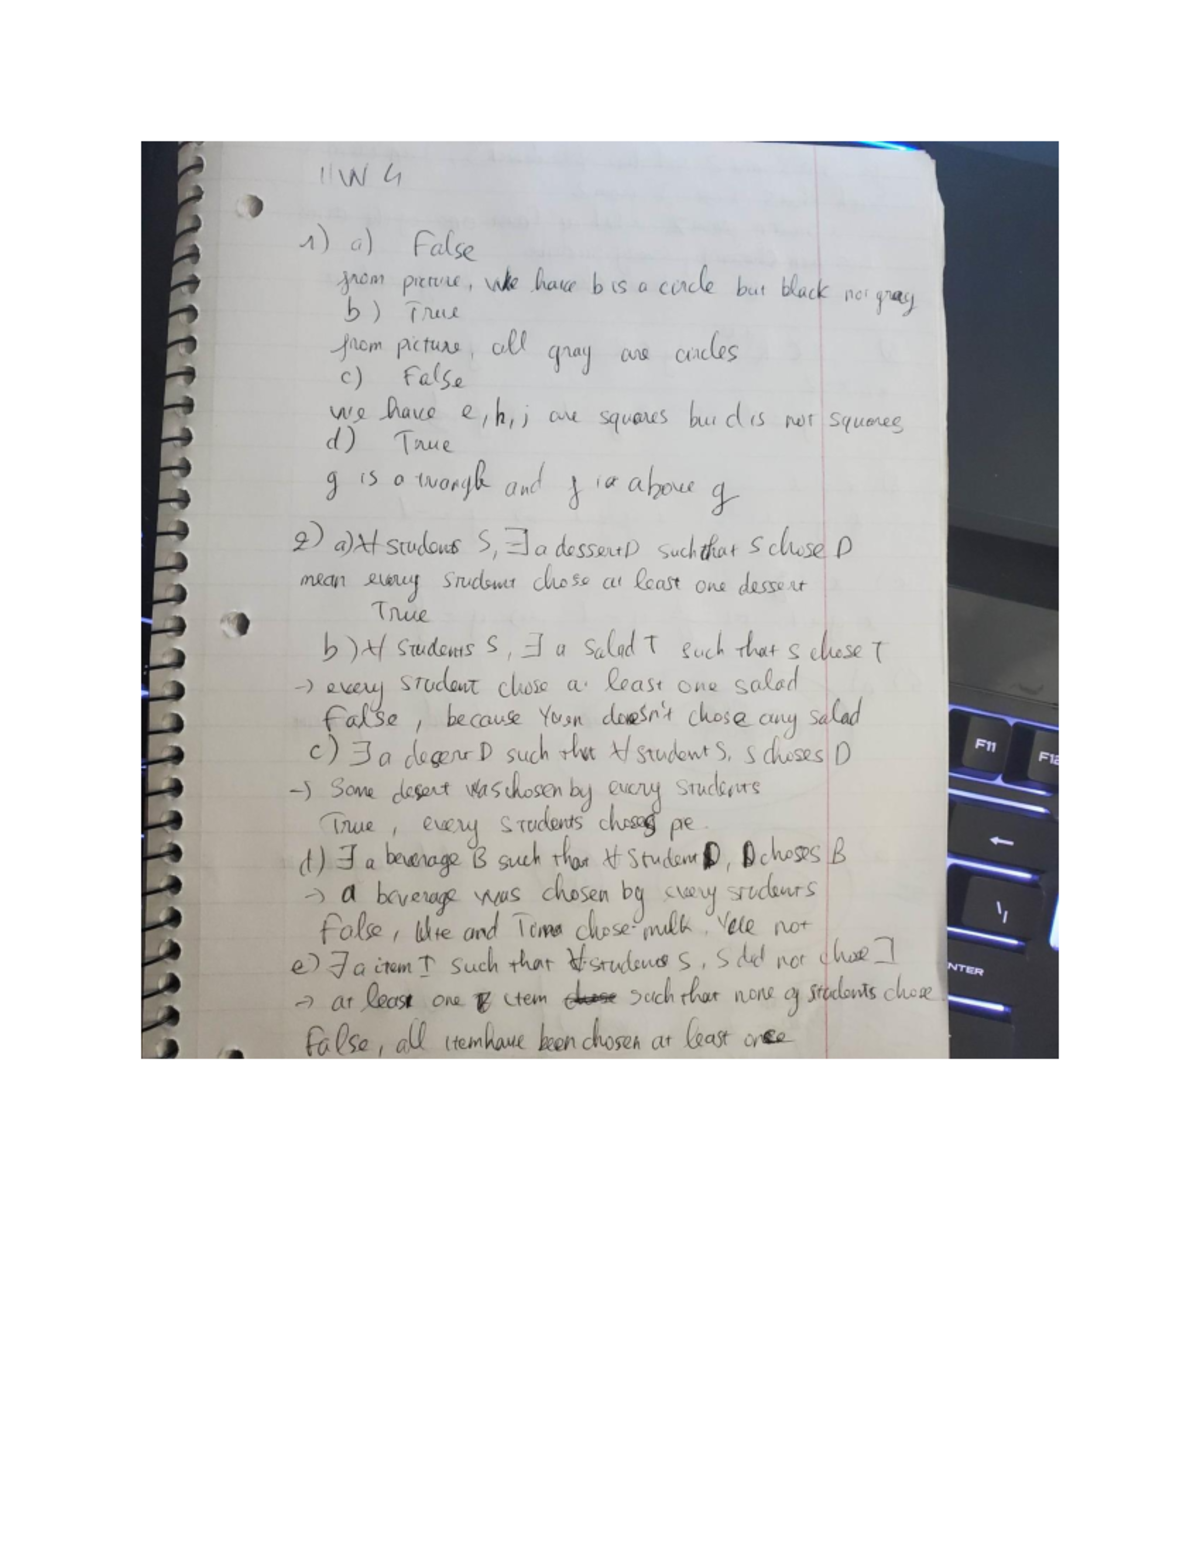 HW 4
1) a) False
from picture, we have b is a circle but black not gray
b) True
from picture, all gray are circles
c) False
we have e, h, j are squares but d is not squares
d) True
g is a triangle and f is above g
2) a) ∀ students S, ∃ a dessert D such that S chose D
mean every student chose at least one dessert
True
b) ∀ students S, ∃ a salad T such that S chose T
→ every student chose a least one salad
False, because Yuen doesn't chose any salad
c) ∃ a desert D such that ∀ student S, S choses D
→ Some desert was chosen by every students
True, every students choses pie.
d) ∃ a beverage B such that ∀ student D, D choses B
→ a beverage was chosen by every students
False, and chose milk, not
e) ∃ a item I such that ∀ students S, S did not chose I
→ at least one item such that none of students chose
False, all item have been chosen at least once
F11
F12
←
\
NTER